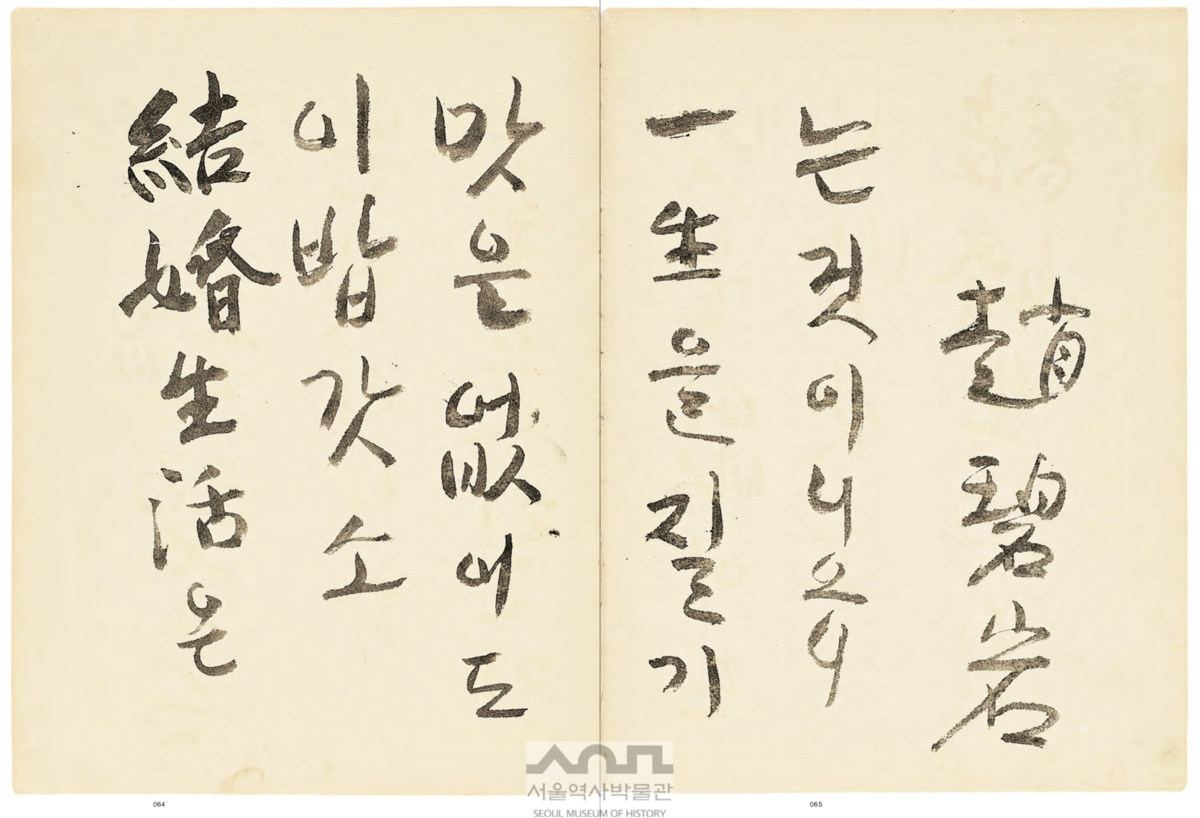 結婚生活은
이밥갓소
맛은없어도
一生을질기
는것이니오
趙碧岩
064
065
서울역사박물관
SEOUL MUSEUM OF HISTORY